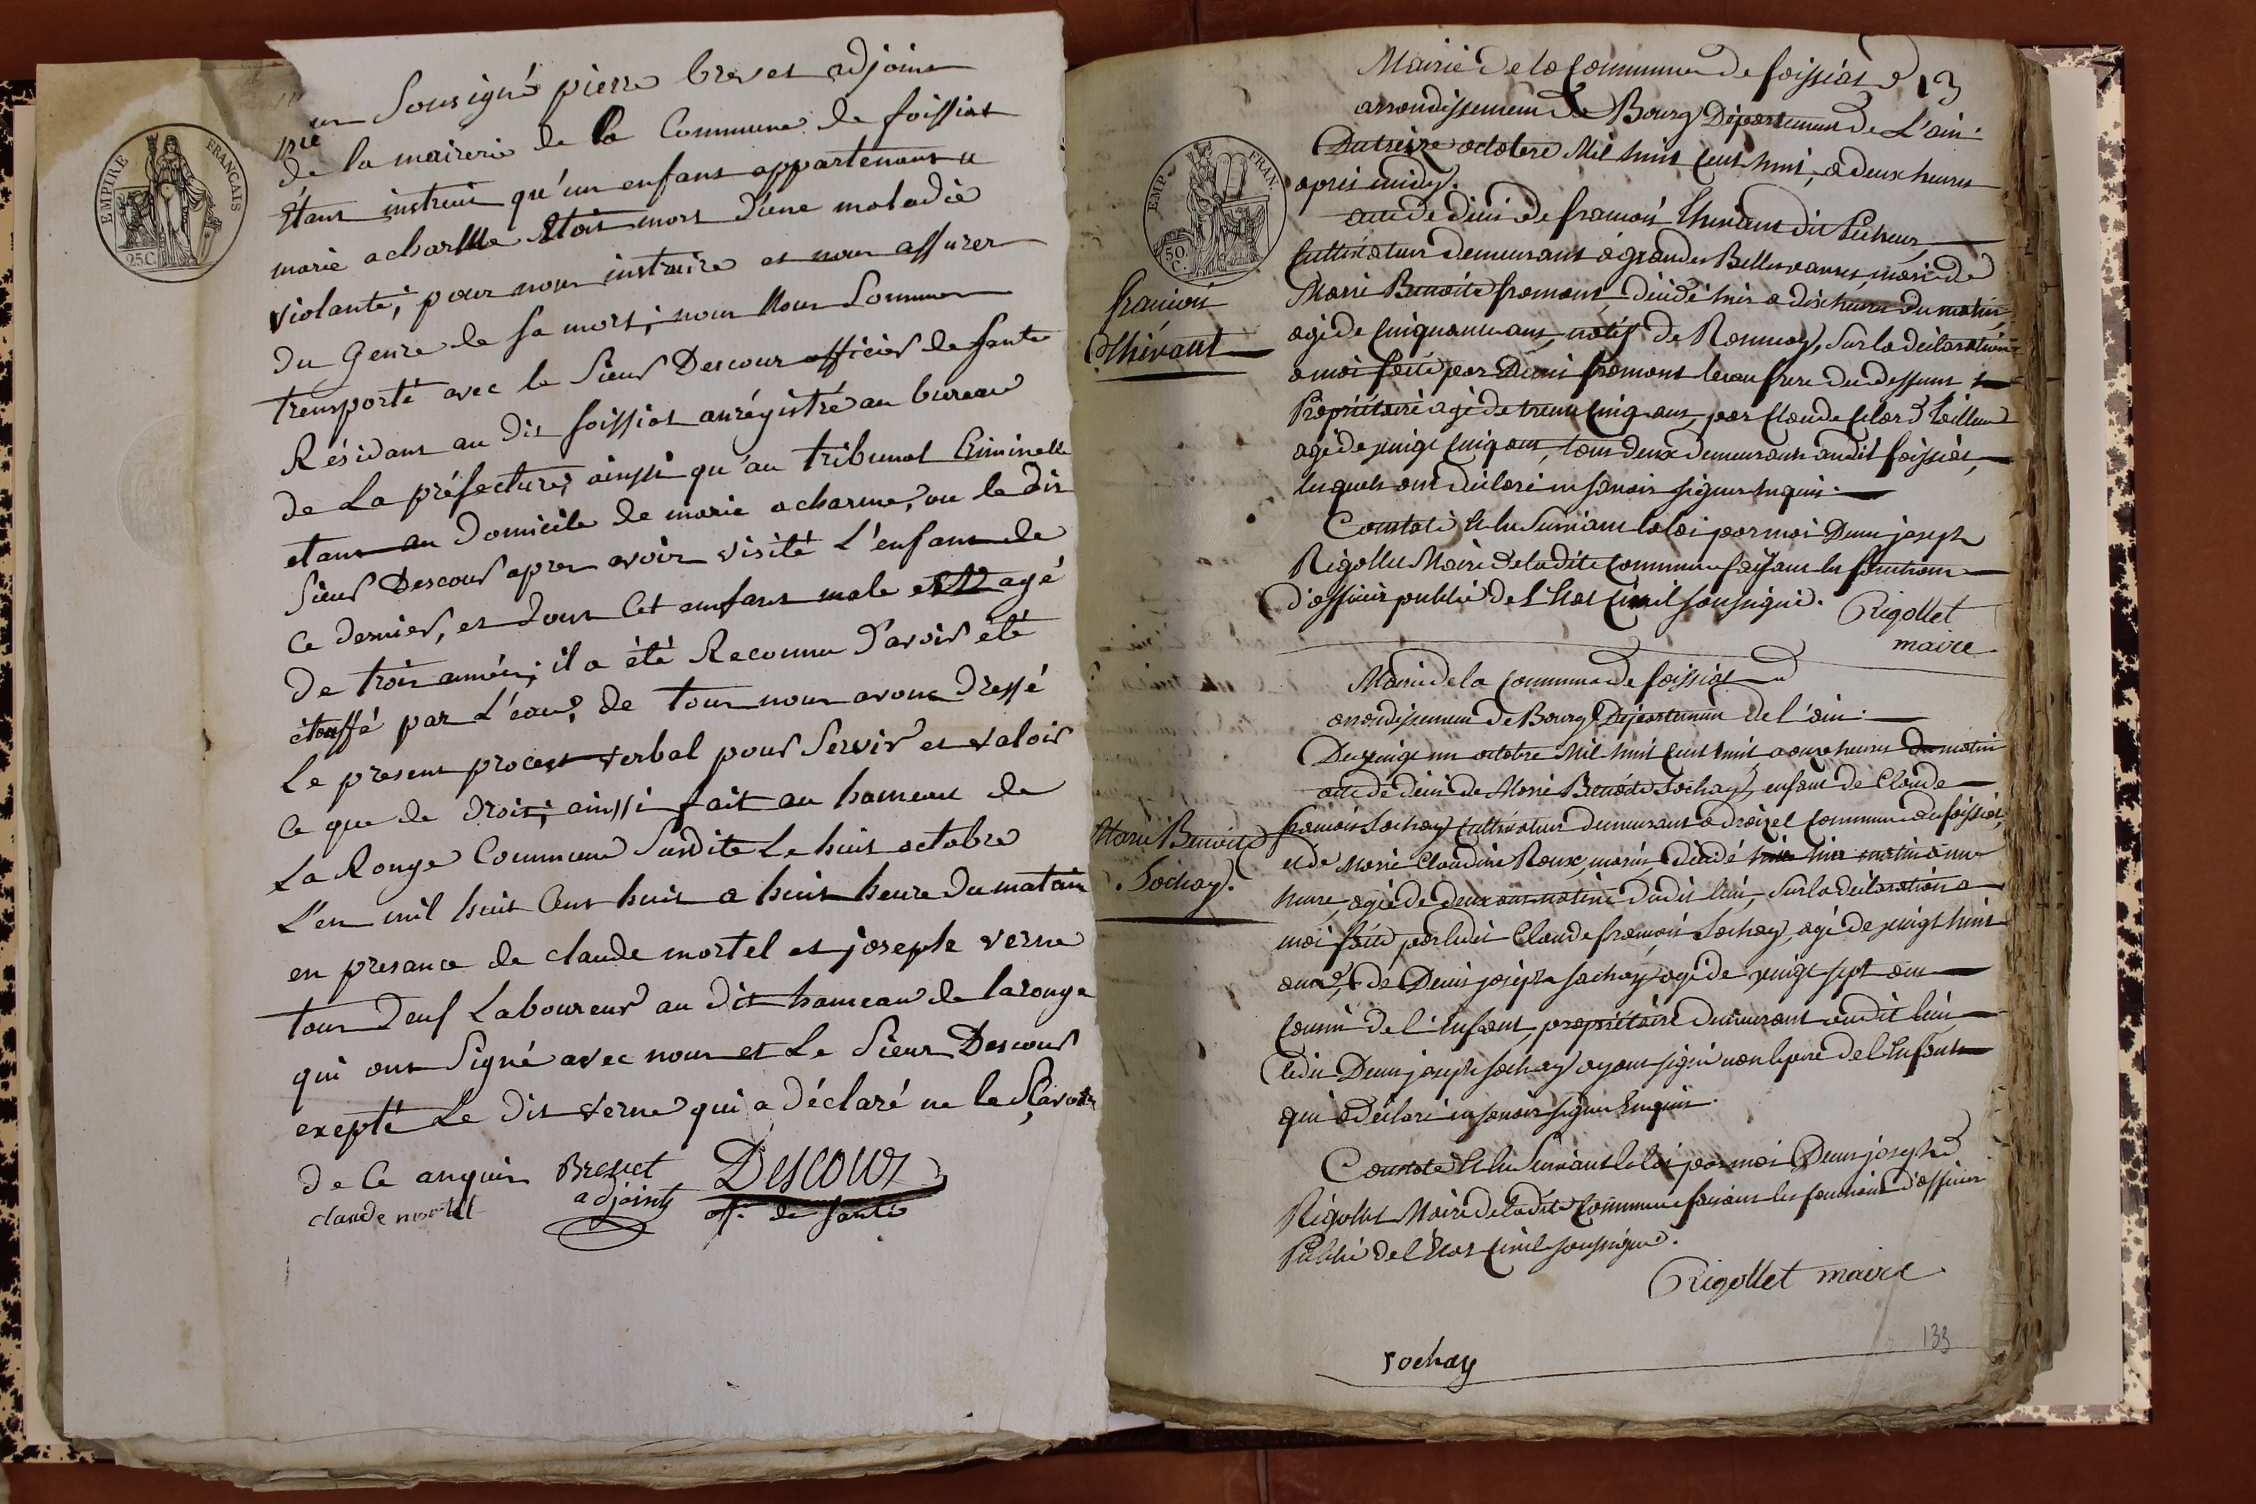 EMPIRE FRANCAIS
25.C.
Sousigné pierre brevet adjoint
de la mairerie de la Commune de foissiat
Étant instruit qu'un enfant appartenant a
marie acharme étoit mort d'une maladie
violante, pour nous instruire et nous assurer
du Genre de sa mort, nous nous sommes
transporté avec le Sieur Descour officier de santé
Résidant au dit foissiat anrégistré au bureau
de La préfecture, ainssi qu'au tribunal Criminelle
etant au domicile de marie acharme, ou le dit
Sieur Descour apres avoir visité L'enfant de
Ce dernier, et dont Cet anfant male agé
De trois année; il a été Reconnu d'avoir été
étouffé par L'eau, de tout nous avons dressé
Le present procest verbal pour Servir et valoir
Ce que de droit, ainssi fait au hameau de
La Rouge Commune Susdite Le huit octobre
L'en mil huit Cent huit a huit heure du matain
en presance de claude mortel et joseph verne
tous deuf Laboureur au dit hameau de larouge
qui ont Signé avec nous et Le Sieur Descour
exepté Le dit verne qui a déclaré ne le sçavoir
de Ce anquis Brevet Descour
claude mortel adjoint of. de santé
Mairie de la Commune de foissiat 13
arrondissement de Bourg Département de L'ain.
EMP. FRAN.
50. C.
Du treize octobre Mil huit Cent huit, a deux heures
après midy.
acte de décès de françois Thévant dit Pecheur,
Cultivateur demeurant à grandes Bellesvavres, mari de
françois
Thévant
Marie Benoite fromont, décédé hier a dix heures du matin,
agé de Cinquante ans, natif de Romenay, Sur la déclaration
a moi faite par Denis fromont beau frere du deffunt
Propriétaire agé de trente Cinq ans, par Claude tailleur
agé de vingt Cinq ans, tous deux demeurants audit foissiat,
lesquels ont déclaré ne savoir signer Enquis.
Constaté Et lu Suivant la loi par moi Denis joseph
Rigollet Maire de ladite Commune faisant les fonctions
d'officier public de L'Etat Civil soussigné. Rigollet
maire
Mairie de la Commune de foissiat
arrondissement de Bourg Département de l'ain.
Du vingt un octobre Mil huit Cent huit, a onze heures du matin
acte de décès de Marie Benoite Sochay, enfant de Claude
Marie Benoite
Sochay.
françois Sochay Cultivateur demeurant a Commune de foissiat,
et de Marie Claudine Roux, mariés, décédé hier matin à une
heure, agée de deux ans native dudit lieu, Sur la déclaration a
moi faite par ledit Claude françois Sochay, agé de vingt huit
ans, Et de Denis joseph Sochay agé de vingt sept ans
Cousin de l'Enfant, propriétaire demeurant audit lieu
Ledit Denis joseph Sochay ayant signé non le pere de l'Enfant
qui a déclaré ne savoir signer Enquis.
Constaté Et lu Suivant la loi par moi Denis joseph
Rigollet Maire de ladite Commune faisant les fonctions d'officier
Public de l'Etat Civil soussigné.
Rigollet maire
sochay
133